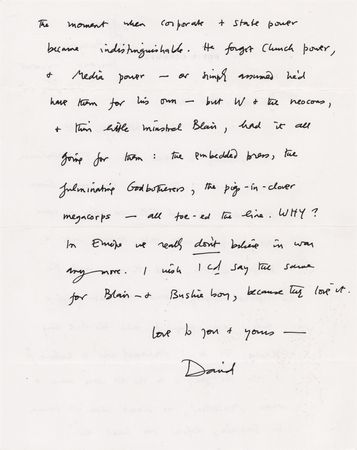 the moment when corporate + state power
became indistinguishable. He forgot Church power,
+ Media power — or simply assumed he'd
have them for his own — but W + the neocons,
+ their little minstrel Blair, had it all
going for them: the embedded press, the
fulminating Godbotherers, the pigs-in-clover
megacorps — all toe-ed the line. WHY?
In Europe we really don't believe in war
any more. I wish I cd say the same
for Blair — & Bushie boy, because they love it.
Love to you + yours —
David